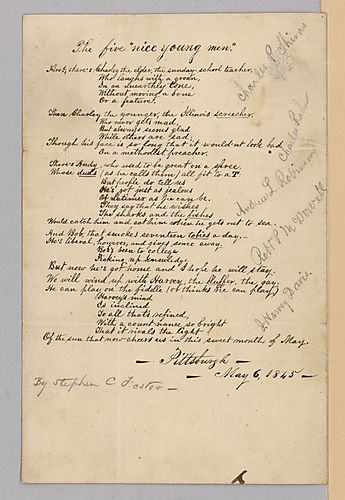 The five "nice young men".
First, there's Charley the elder, the sunday-school teacher,
Who laughs with a groan,
In an unearthly tone,
Without moving a bone
Or a feature.
Then Charley the younger, the Illinois screecher,
Who never gets mad,
But always seems glad
While others are sad;
Though his face is so long that it would not look bad
On a methodist preacher.
There's Andy, who used to be great on a spree
Whose duds (as he calls them) all fit to a T.
But people do tell us
He's got just as jealous
Of as he can be.
They say that he wishes
The sharks and the fishes
Would catch him and eat him when he gets out to sea.
And Bob, that smokes seventeen tobies a day,
He's liberal, however, and gives some away.
Bob's been to college
Picking up knowledge
But now he's got home and I hope he will stay.
We will wind up with Harvey, the bluffer, the gay.
He can play on the fiddle (or thinks he can play)
Harvey's mind
Is inclined
To all that's refined,
With a count'nance so bright
That it rivals the light
Of the sun that now cheers us in this sweet month of May.
Pittsburgh
May 6, 1845
By Stephen C Foster
Charles P. Shiras
Charles
Andrew L. Robinson
Robt P. McDowell
J. Harvey Davis.